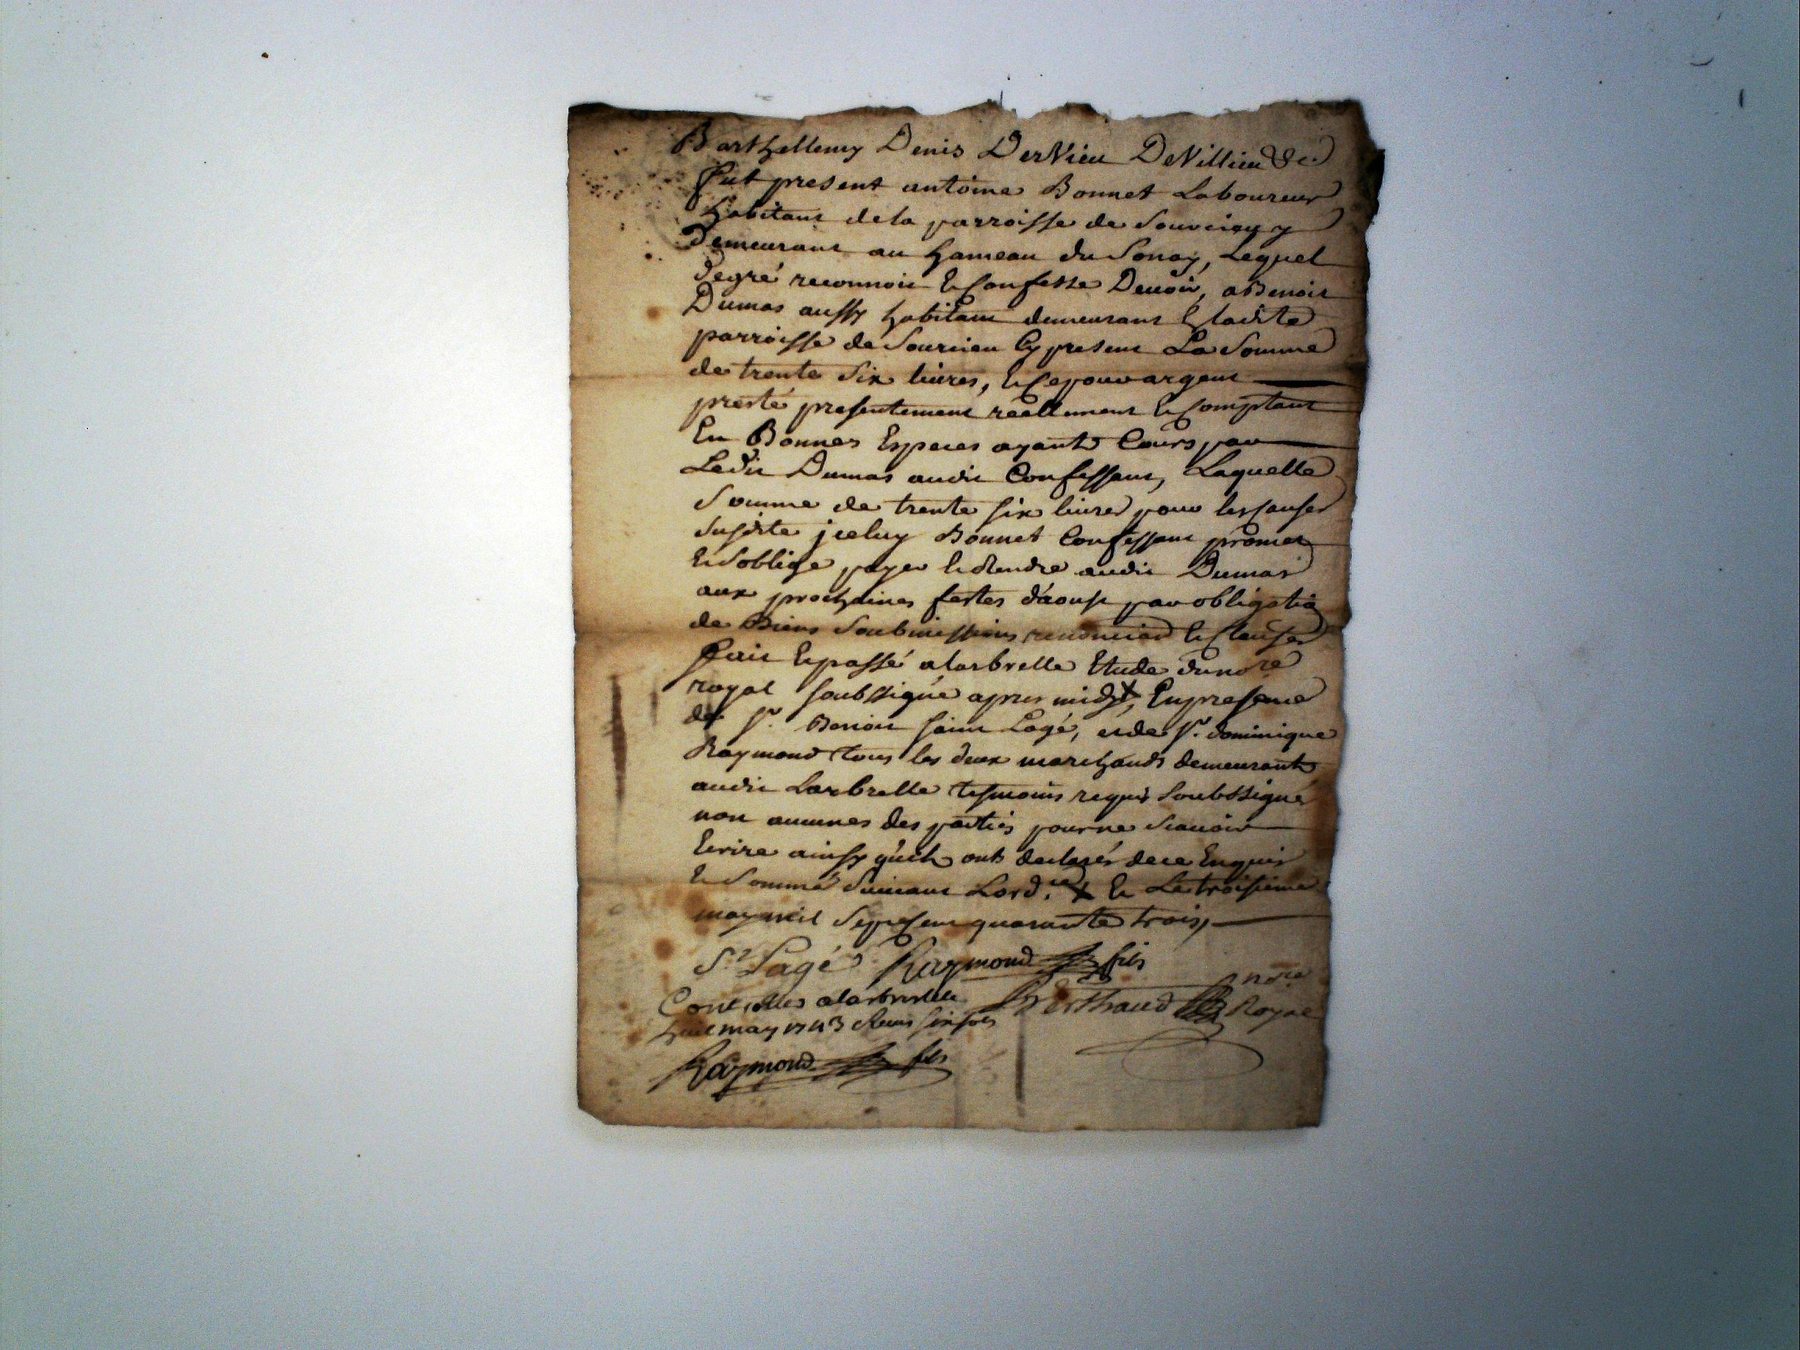 Barthellemy Denis DerVieu DeVillieu &c.
Fut present antoine Bonnet Laboureur
habitant de la parroisse de Sourcieu y
Demeurant au hameau du Sonay, Lequel
degré reconnoit & Confesse Devoir, a Benoit
Dumas aussy habitant demeurant & ladite
parroisse de Sourcieu Cy present La Somme
de trente Six livres, & Ce pour argent
presté presentement reellement & Comptant
En Bonnes Especes ayants Cours par
Ledit Dumas audit Confessant, Laquelle
Somme de trente six livres pour les causes
susdite jceluy Bonnet Confessant promet
& Soblige payer & Rendre audit Dumas
aux prochaines festes d'aoust par obligatio
de Biens Soubmissions renonciaon & Clauses
fait & passé a larbrelle Etude du nore
royal soubssigné apres midy, En presence
de Sr. Benoit saint Lagé, et de Sr. dominique
Raymond tous les deux marchands demeurants
audit Larbrelle tesmoins requis Soubssignés
non aucunes des parties pour ne Scavoir
Ecrire ainsy quils onts declarés de ce Enquis
& Sommé Suivant Lord.ce & Le troisieme
may mil Septcent quarante trois,
St Lagé Raymond fils
Controllé a larbrelle Berthaud nore Royal
huit may 1743 Recus six sols
Raymond fils